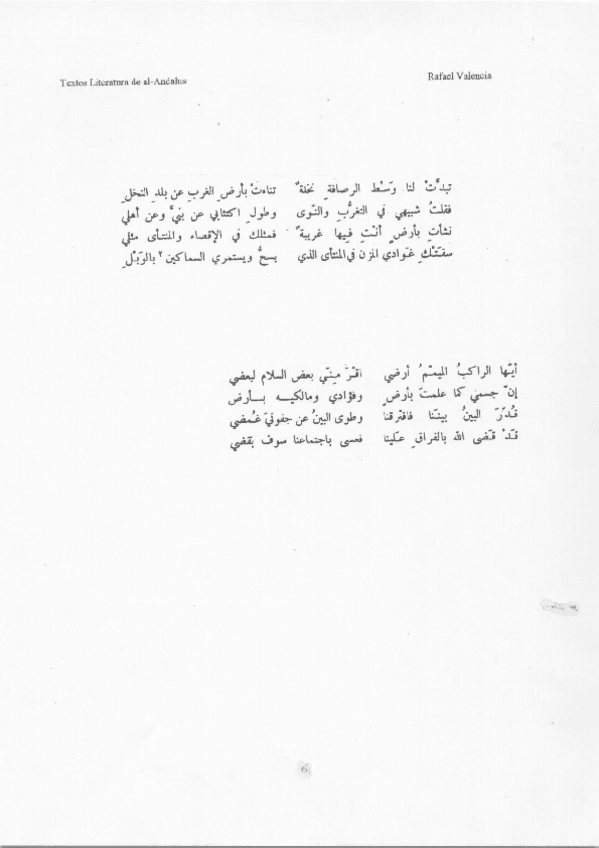 Textos Literatura de al-Andalus Rafael Valencia
تبدَّتْ لنا وَسْط الرصافةِ نخلةٌ تناءتْ بأرضِ الغربِ عن بلدِ النخلِ
فقلتُ شبيهي في التغرُّبِ والنوى وطولِ اكتئابي عن بنيَّ وعن أهلي
نشأتِ بأرضٍ أنتِ فيها غريبةٌ فمثلكِ في الإقصاء والمنتأى مثلي
سقتْكِ غوادي المزن في المنتأى الذي يسحُّ ويستمري السماكين ٢ بالوَبْلِ
أيّها الراكبُ الميممُ أرضي اقرَ مِنّي بعض السلام لبعضي
إنّ جسمي كما علمتَ بأرضٍ وفؤادي ومالكيه بأرض
قُدّرَ البينُ بيننا فافترقنا وطوى البينُ عن جفوني غُمضي
قدْ قضى الله بالفراقِ علينا فعسى باجتماعنا سوف يقضي
6